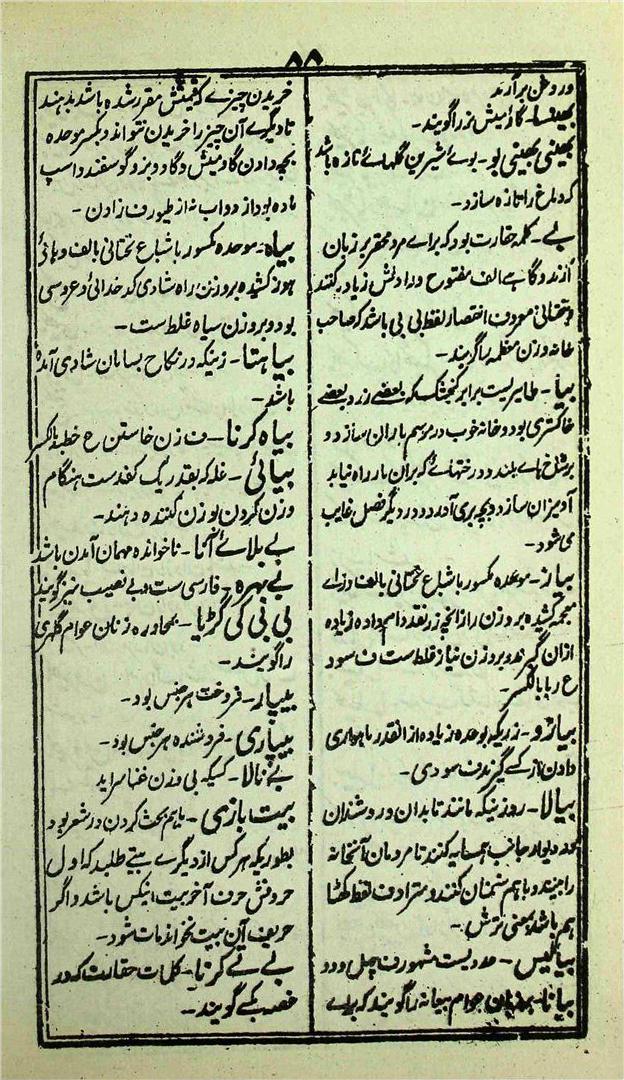 ۵۸
و روغن برآرند
بھینسا۔ گاؤمیش نر را گویند۔
بھینی بھینی بو۔ بوے شیرین گلہاے تازہ باشد
کہ دماغ را تازہ سازد۔
بے۔ کلمہ حقارت بود کہ براے مرد محقر بر زبان
آرند و گاہے الف مفتوح در اولش زیادہ کنند
و تحتانی معروف اختصار لفظ بی بی باشد کہ صاحب
خانہ و زن معظمہ را گویند۔
بیا۔ طایریست برابر کنجشک کہ بعضے زرد و بعضے
خاکستری بود و خانہ خوب در موسم باران سازد و
بر شاخہاے بلند درختہاے کہ بران مار راہ نیابد
آویزان سازد و بچہ بری آرد و در دیگر فصل غایب
می شود۔
بیاز۔ موحدہ مکسور باشباع تحتانی بالف و زاے
معجمہ کشیدہ بر وزن راز آنچہ زر نقد وام دادہ زیادہ
ازان گیرند و بر وزن نیاز غلط ست ف سود
ع ربا بالکسر۔
بیاڑو۔ زریکہ بوعدہ زیادہ از انقدر ماہواری
دادن از کسے گیرند ف سودی۔
بیالا۔ روزنیکہ مانند تابدان و روشندان
در دیوار جانب ہمسایہ کنند تا مردمان آنخانہ
را بینند و باہم سخنان کنند و مترادف لفظ کھٹا
ہم باشد بمعنی ترش۔
بیالیس۔ عددیست مشہور ف چہل و دو
بیانا۔ بزبان عوام بیعانہ را گویند کہ براے
خریدن چیزے کہ قیمتش مقرر شدہ باشد بدہند
تا دیگرے آن چیز را خریدن نتواند و بکسر موحدہ
بچہ دادن گاؤمیش و گاو و بز و گوسفند و اسپ
مادہ بود از دواب نہ از طیور ف زادن۔
بیاہ۔ موحدہ مکسور باشباع تحتانی بالف و ہائے
ہوز کشیدہ بر وزن راہ شادی کدخدائی و عروسی
بود و بر وزن سیاہ غلط ست۔
بیاہتا۔ زنیکہ در نکاح بسامان شادی آمدہ
باشد۔
بیاہ کرنا۔ ف زن خاستن ع خطبہ بالکسر
بیائی۔ غلہ کہ بقدر یک کفدست ہنگام
وزن کردن بوزن کنندہ دہند۔
بے بلائے آنا۔ ناخواندہ مہمان آمدن باشد
بے بہرہ۔ فارسی ست و بے نصیب نیز گویند
بی بی کی گڑیا۔ بمحاورہ زنان عوام گلہری
را گویند۔
بیپار۔ فروخت ہر جنس بود۔
بیپاری۔ فروشندہ ہر جنس بود۔
بے تالا۔ کسیکہ بی وزن غنا سراید
بیت بازی۔ باہم بحث کردن در شعر بود
بطوریکہ ہر کس از دیگرے بیتے طلبد کہ اول
حروفش حرف آخر بیت اینکس باشد و اگر
حریف آن بیت نخواند مات شود۔
بے تے کرنا۔ کلمات حقارت کہ در
غضب بکسے گویند۔